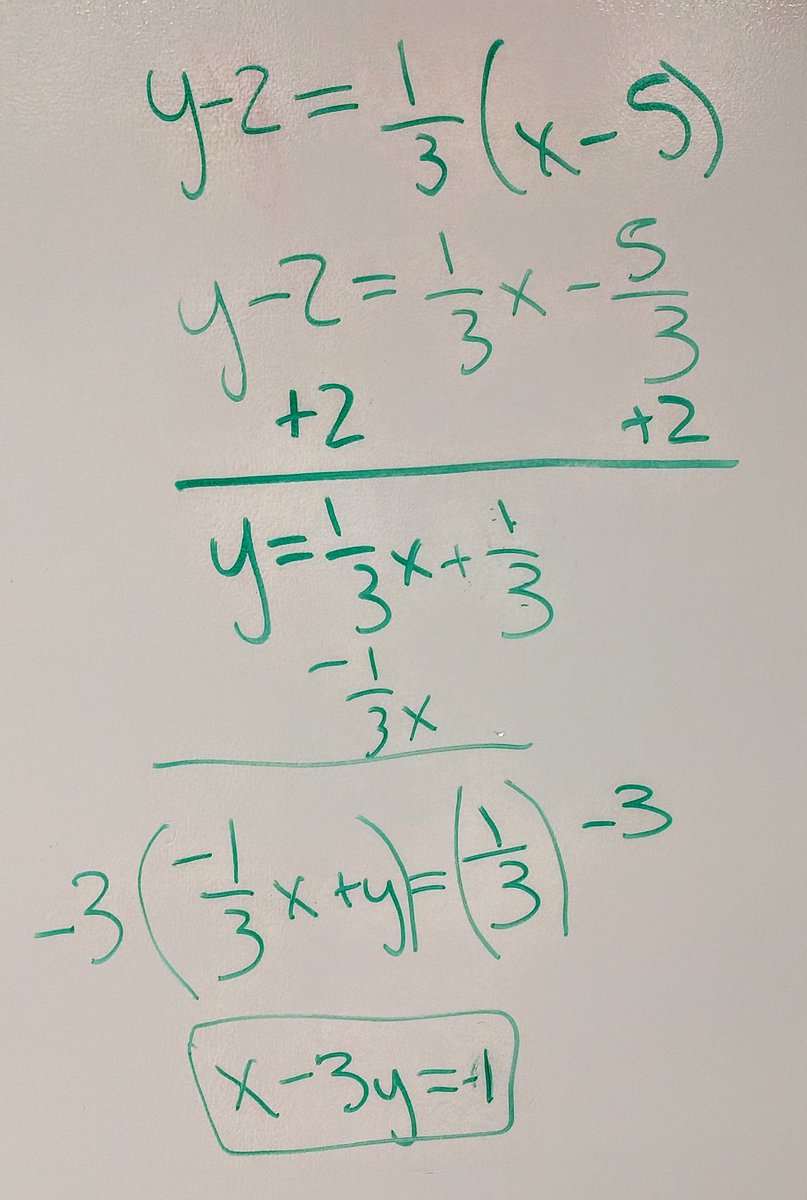 y-2=1/3(x-5)
y-2=1/3x-5/3
+2 +2
y=1/3x+1/3
-1/3x
-3(-1/3x+y)=(1/3)-3
x-3y=-1